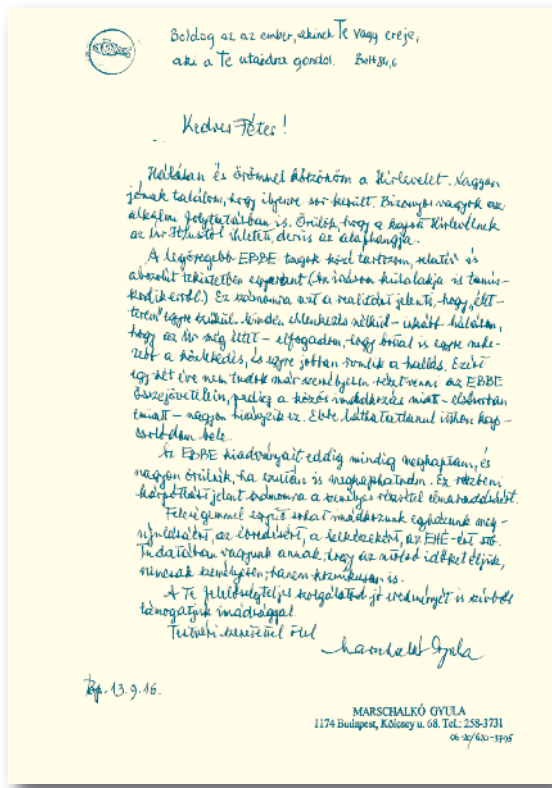 Boldog az az ember, akinek Te vagy ereje,
aki a Te utaidra gondol. Zsolt 84,6
Kedves Péter!
Hálásan és örömmel köszönöm a Hírlevelet. Nagyon
jónak találom, hogy ilyenre sor került. Bizonyos vagyok az
alkalmi folytatásban is. Örülök, hogy a kapott Hírlevélnek
az Úr Jézustól ihletett, derűs az alaphangja.
A legöregebb EBBE tagok közé tartozom, relatív és
abszolút tekintetben egyaránt (Az írásom külalakja is tanús-
kodik erről.) Ez számomra azt a realitást jelenti, hogy „élet-
terem" egyre szűkül. Minden ellenkezés nélkül – inkább hálásan,
hogy az Úr még éltet – elfogadom, hogy bottal is egyre nehe-
zebb a közlekedés, és egyre jobban romlik a hallás. Ezért
egy-két éve nem tudok már személyesen részt venni az EBBE
összejövetelein, pedig a közös imádkozás miatt – elsősorban
emiatt – nagyon hiányzik ez. Ebbe láthatatlanul itthon kap-
csolódom bele.
Az EBBE kiadványait eddig mindig megkaptam, és
nagyon örülnék, ha ezután is megkaphatnám. Ez részbeni
kárpótlást jelent számomra a személyes részvétel elmaradásáért.
Feleségemmel együtt sokat imádkozunk egyházunk meg-
újulásáért, az ébredésért, a lelkészekért, az EHE-ért stb.
Tudatában vagyunk annak, hogy az utolsó időket éljük,
nemcsak személyesen, hanem kozmikusan is.
A Te felelősségteljes szolgálatod jó eredményét is szívből
támogatjuk imádsággal
Testvéri szeretettel ölel
Marschalkó Gyula
Bp. 13.9.16.
MARSCHALKÓ GYULA
1174 Budapest, Kölcsey u. 68. Tel.: 258-3731